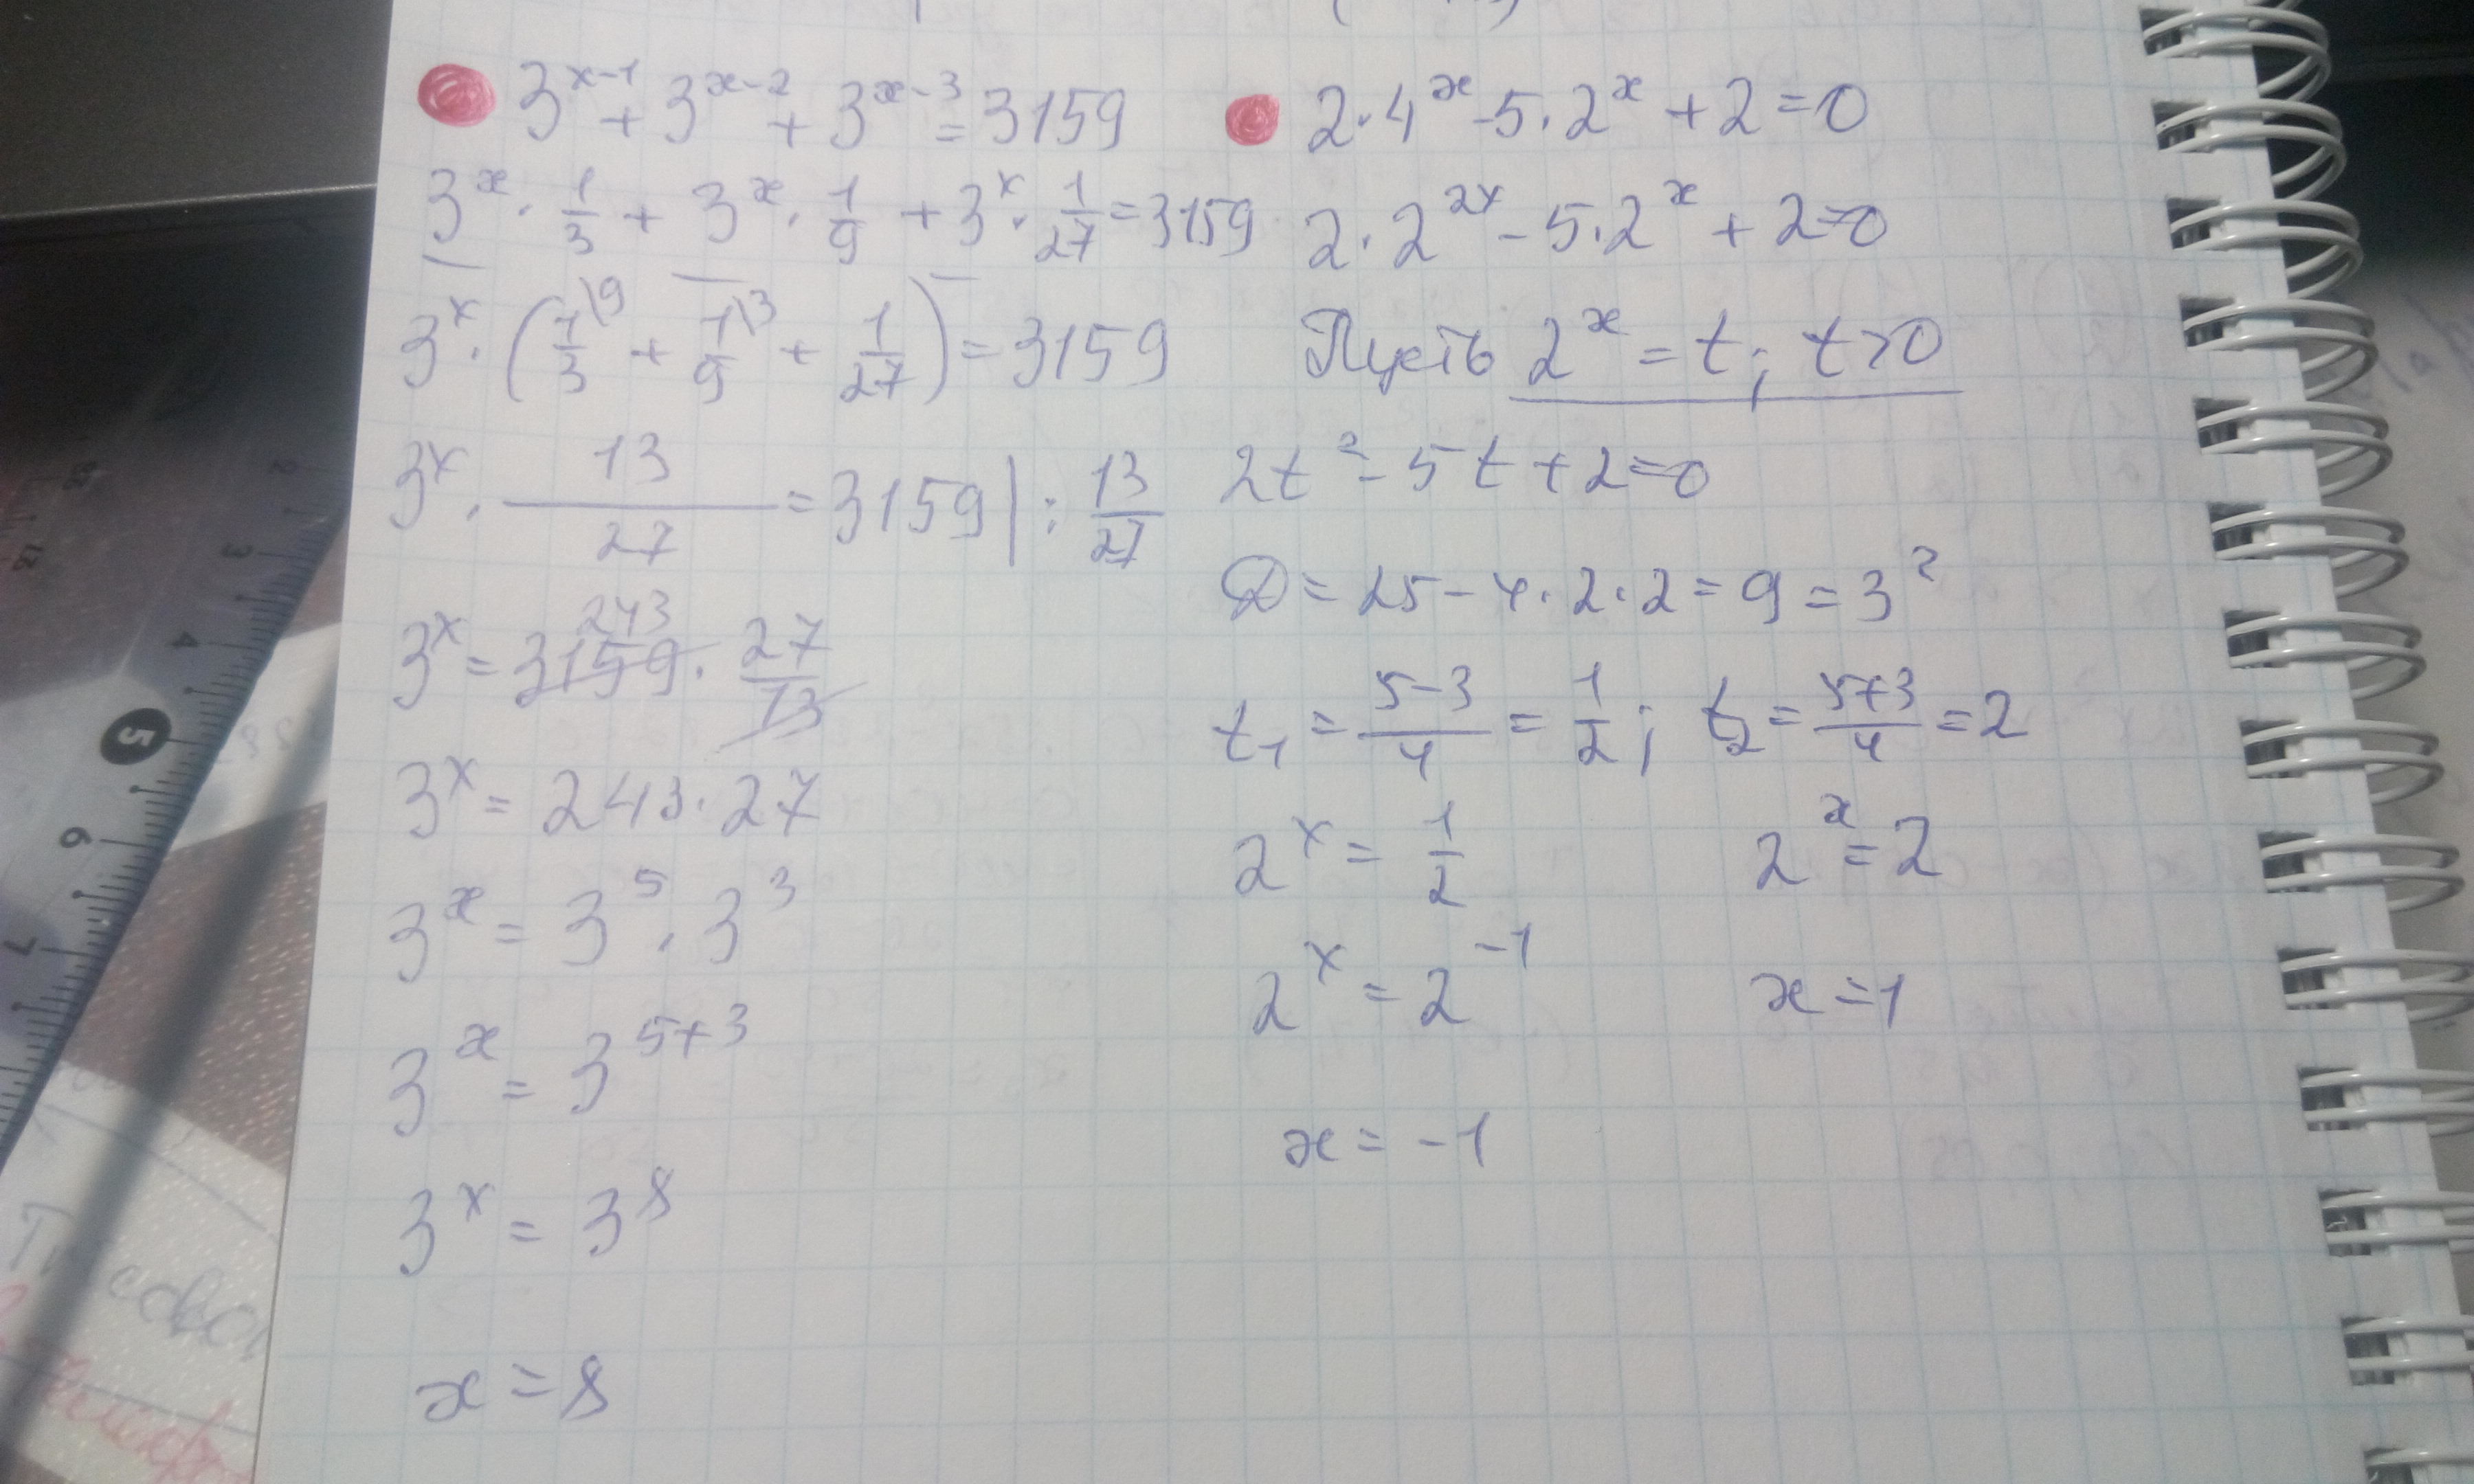 3^{x-1} + 3^{x-2} + 3^{x-3} = 3159
3^x · 1/3 + 3^x · 1/9 + 3^x · 1/27 = 3159
3^x · (1/3\9 + 1/9\3 + 1/27) = 3159
3^x · 13/27 = 3159 | : 13/27
243
3^x = 3159 · 27/13
3^x = 243 · 27
3^x = 3^5 · 3^3
3^x = 3^{5+3}
3^x = 3^8
x = 8
2 · 4^x - 5 · 2^x + 2 = 0
2 · 2^{2x} - 5 · 2^x + 2 = 0
Пусть 2^x = t; t > 0
2t^2 - 5t + 2 = 0
D = 25 - 4 · 2 · 2 = 9 = 3^2
t_1 = 5-3/4 = 1/2; t_2 = 5+3/4 = 2
2^x = 1/2 2^x = 2
2^x = 2^{-1} x = 1
x = -1
2
3
4
5
6
7
13